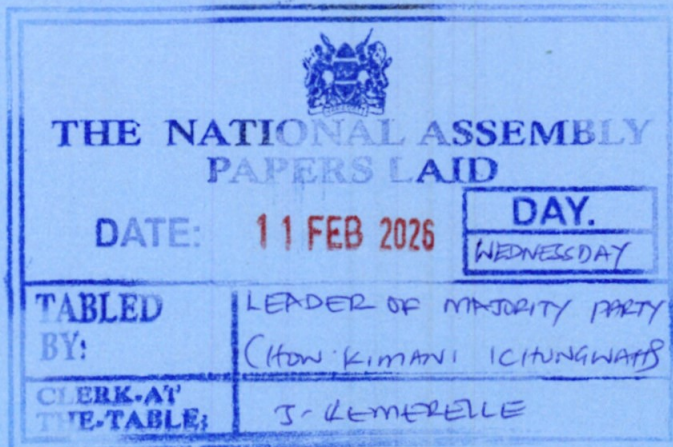 THE NATIONAL ASSEMBLY
PAPERS LAID
DATE: 11 FEB 2026
DAY.
WEDNESDAY
TABLED BY:
LEADER OF MAJORITY PARTY
KIMANI
CLERK-AT THE-TABLE:
J-LEMERELLE